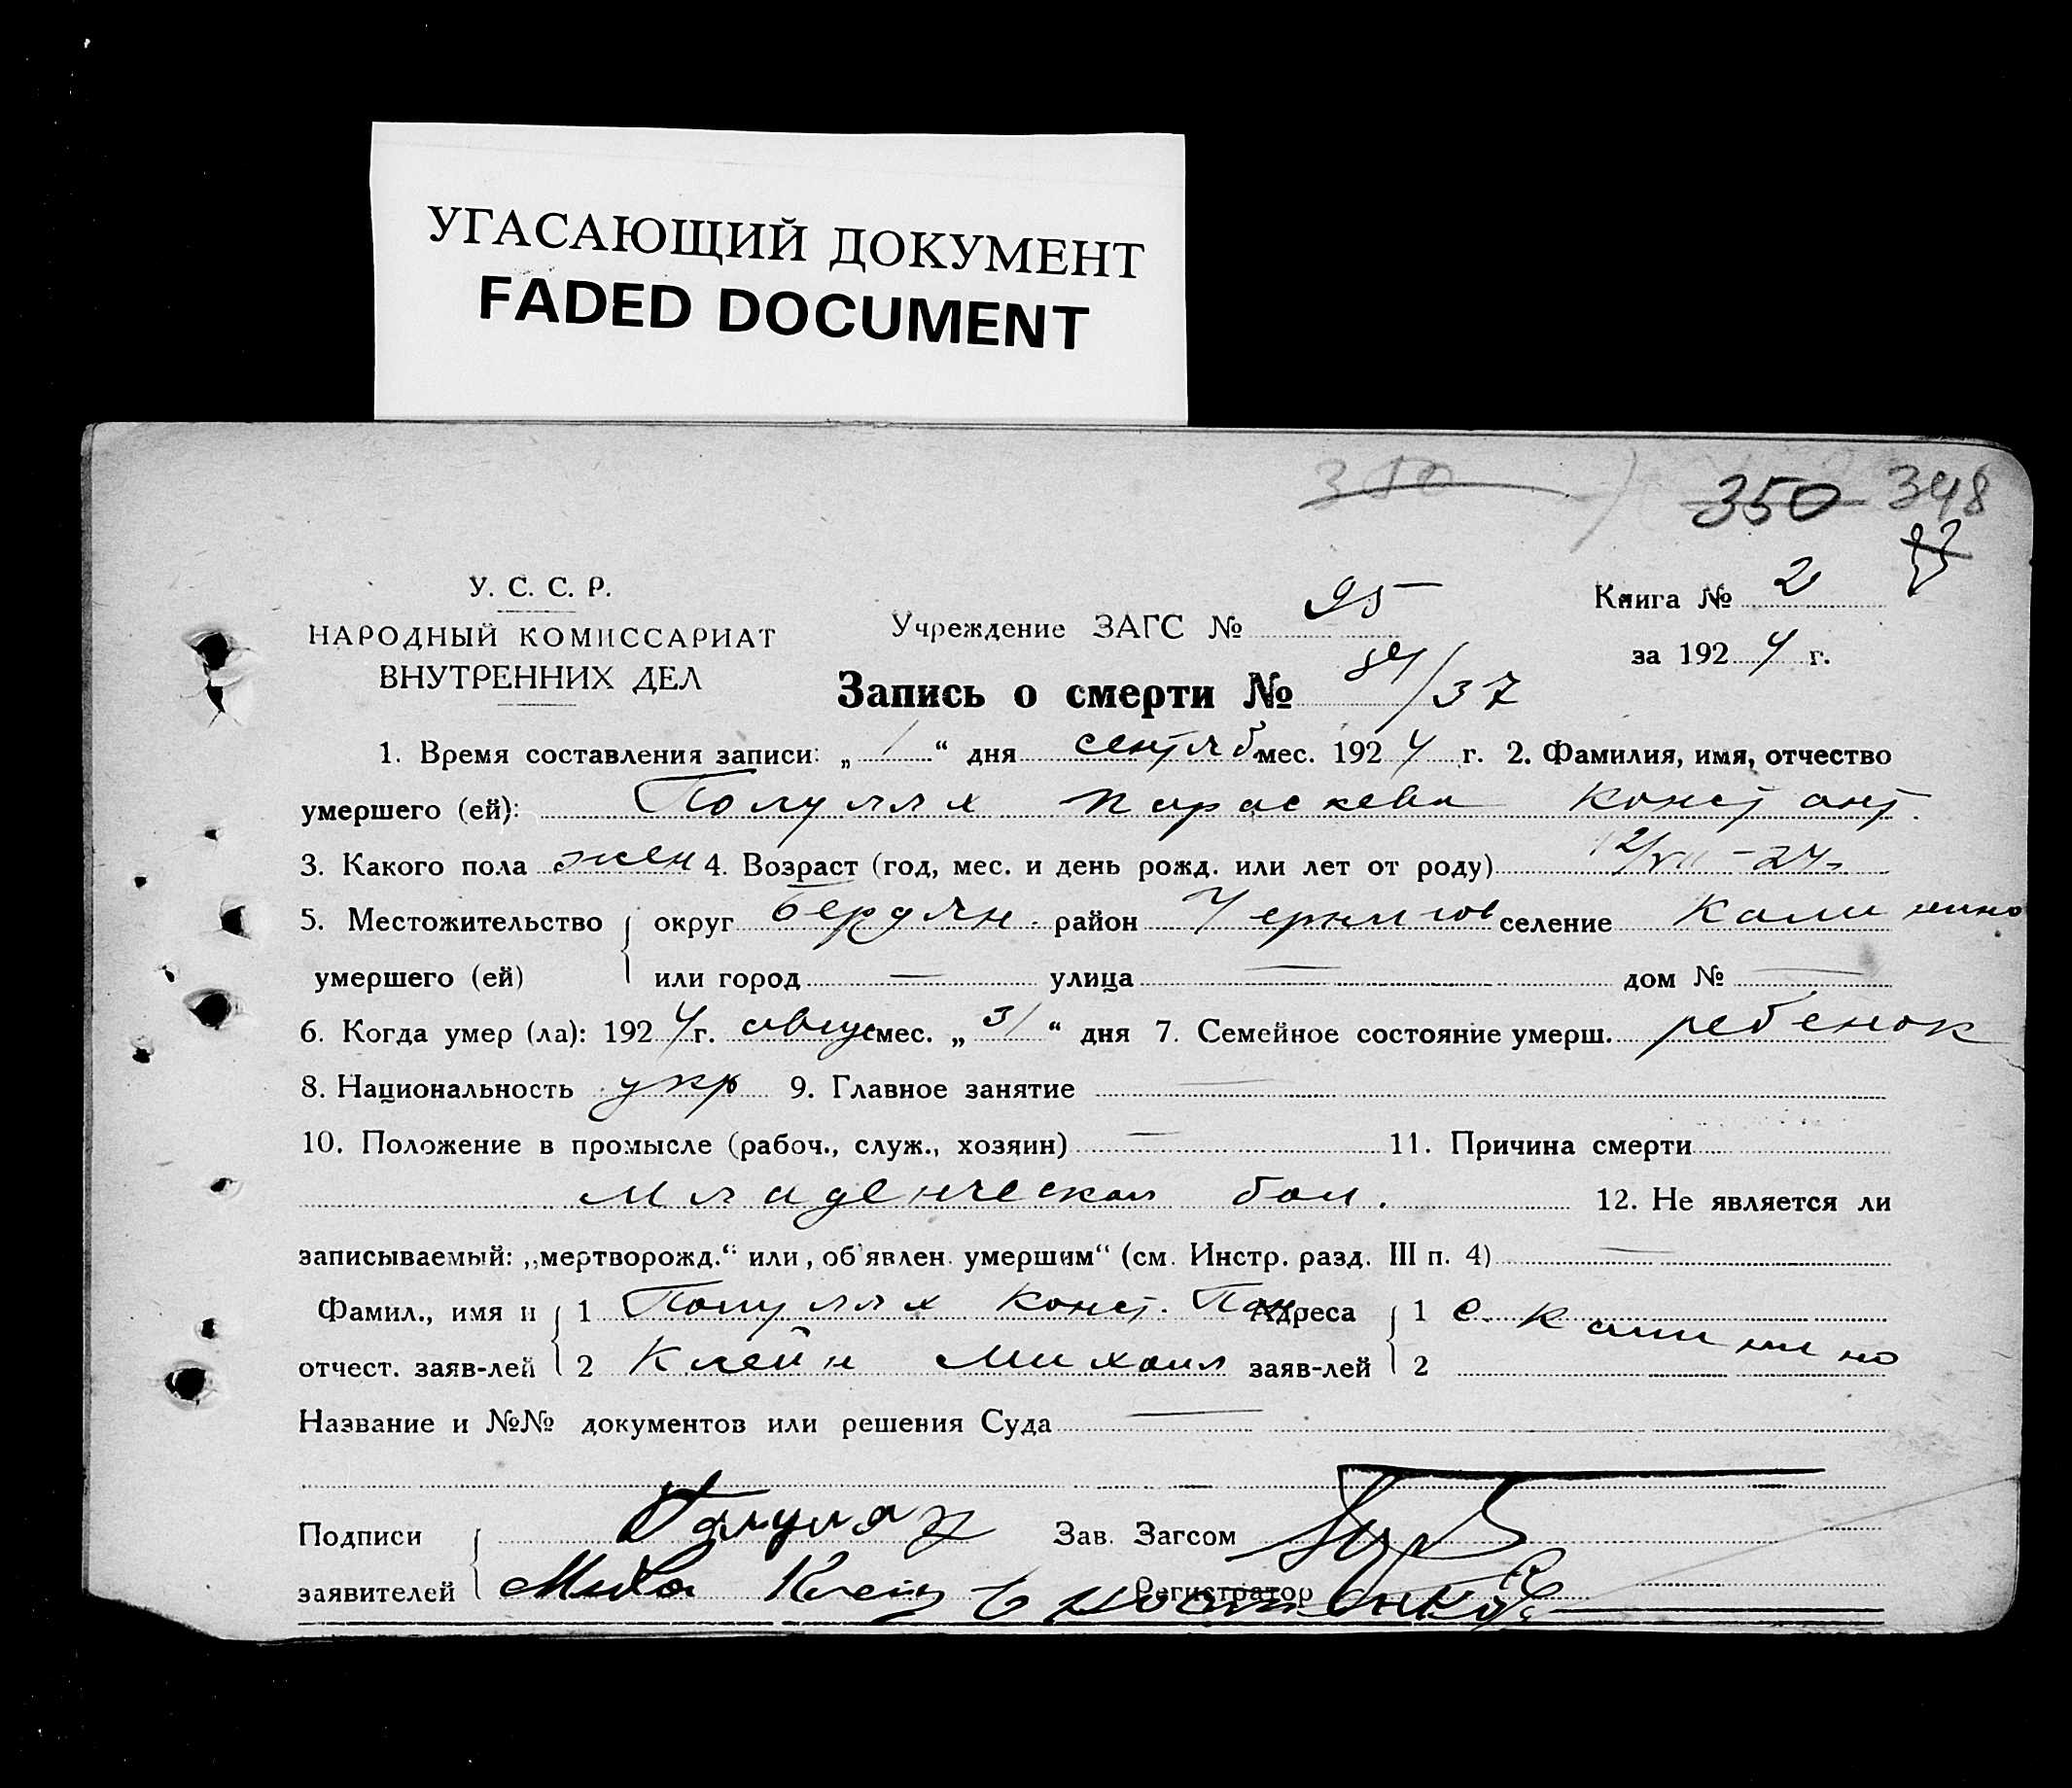 УГАСАЮЩИЙ ДОКУМЕНТ
FADED DOCUMENT
350
350 348
У. С. С. Р.
НАРОДНЫЙ КОМИССАРИАТ
ВНУТРЕННИХ ДЕЛ
Учреждение ЗАГС № 95
Книга № 2
за 1924 г.
Запись о смерти № 84/37
1. Время составления записи: „ 1 “ дня сентяб мес. 1924 г. 2. Фамилия, имя, отчество
умершего (ей): Полуллях Параскева Констант.
3. Какого пола жен 4. Возраст (год, мес. и день рожд. или лет от роду) 12/VII-24
5. Местожительство округ Бердян. район Чернигов селение Калинино
умершего (ей) или город — улица — дом № —
6. Когда умер (ла): 1924 г. август мес. „ 31 “ дня 7. Семейное состояние умерш. ребенок
8. Национальность укр 9. Главное занятие —
10. Положение в промысле (рабоч., служ., хозяин) — 11. Причина смерти
младенческая бол. 12. Не является ли
записываемый: „мертворожд.“ или „об'явлен умершим“ (см. Инстр. разд. III п. 4) —
Фамил., имя и 1 Полуллях Конст. Адреса 1 с. Калинино
отчест. заяв-лей 2 Клейн Михаил заяв-лей 2
Название и №№ документов или решения Суда —
Подписи Зав. Загсом
заявителей Клейн Регистратор